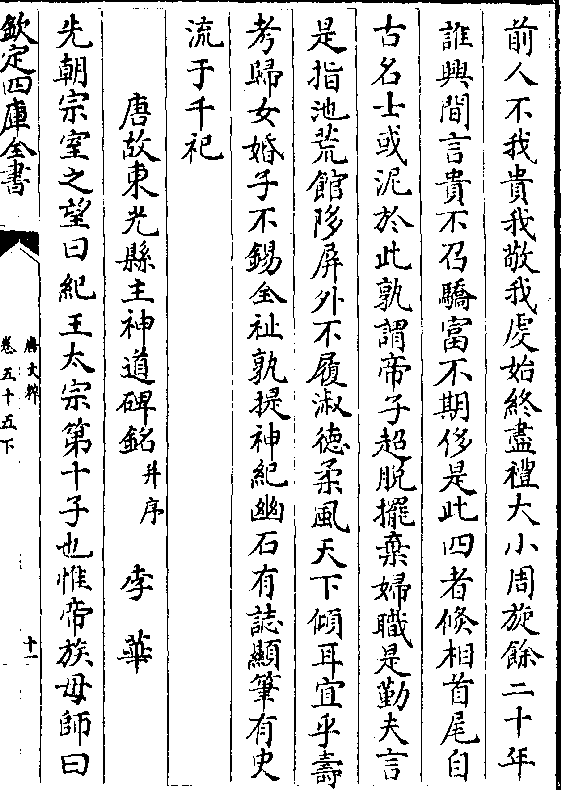 前人不我貴我敬我虔始終盡禮大小周旋餘二十年
誰興間言貴不召驕富不期侈是此四者倐相首尾自
古名士或泥於此孰謂帝子超脫擺棄婦職是勤夫言
是指池荒館陊屏外不履淑德柔風天下傾耳宜乎壽
考歸女婚子不錫全祉孰提神紀幽石有誌顯筆有史
流于千祀
唐故東光縣主神道碑銘并序 李華
先朝宗室之望曰紀王太宗第十子也惟帝族母師曰
欽定四庫全書
唐文粹
卷五十五下
十一